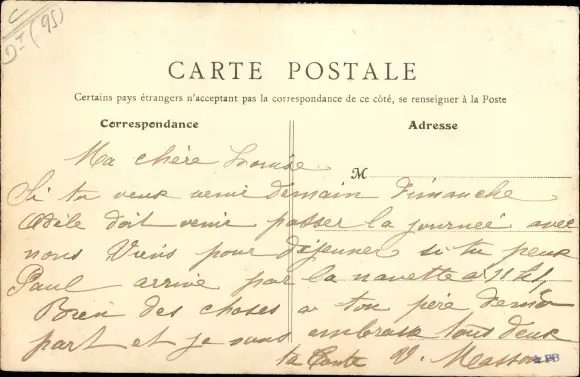 (95)
CARTE POSTALE
Certains pays étrangers n'acceptent pas la correspondance de ce côté, se renseigner à la Poste
Correspondance
Adresse
M
Ma chère Louise
Si tu veux venir demain Dimanche
Adèle doit venir passer la journeé avec
nous Viens pour déjeuner si tu peux
Paul arrive par la navette a 11 h
Bien des choses a ton père de ma
part et je vous embrasse tous deux
ta Tante V. Masson
PB